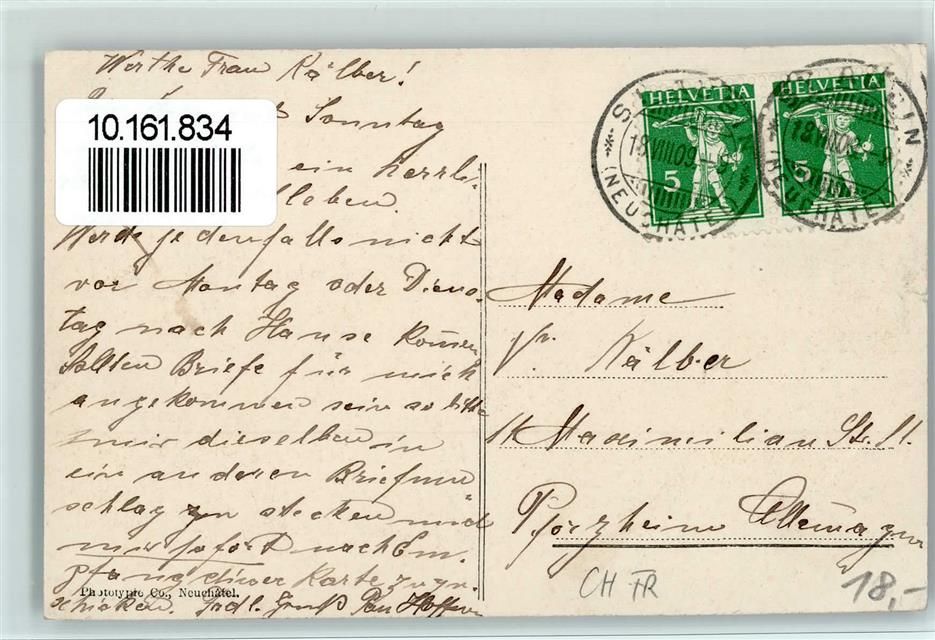 Werthe Frau Kälber!
10.161.834
Sonntag
ein herrli-
leben.
Werde jedenfalls nicht
vor Montag oder Diens-
tag nach Hause komen
sollten Briefe für mich
angekommen sein so bitte
mir dieselben in
ein anderen Briefum
schlag zu stecken und
mir sofort nach Em.
pfang dieser Karte zu
schicken. Frdl. Gruß
Phototypie Co., Neuchâtel.
HELVETIA
5
HELVETIA
5
18.VIII.09
(NEUCHÂTEL)
Madame
Fr. Kälber
Maximilian Str.
Pforzheim Allemagne
CH FR
18,-